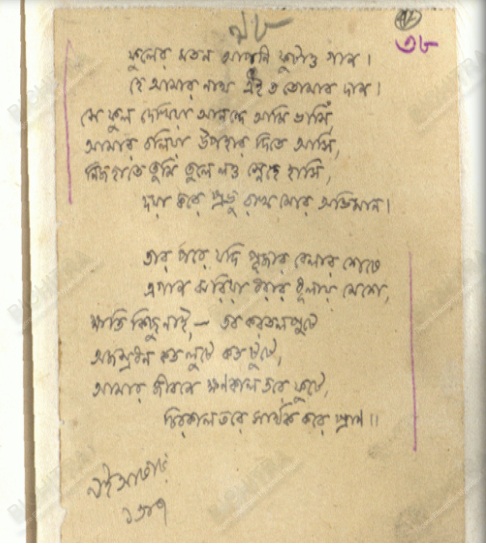 ৩৮
ফুলের মতন আপনি ফুটাও গান।
হে আমার নাথ এই ত তোমার দান।
সে ফুল দেখিয়া আনন্দে আমি ভাসি,
আমার বলিয়া উপহার দিতে আসি,
নিজ হাতে তুমি তুলে লও স্নেহে হাসি,
দয়া করে প্রভু রাখ মোর অভিমান।
তার পরে যদি পূজার বেলার শেষে
এ গান ঝরিয়া ধরার ধূলায় মেশে,
ক্ষতি কিছু নাই,— তব করতলপুটে
অজস্রধন কত লুটে কত টুটে,
আমার জীবনে ক্ষণকাল তরে ফুটে,
চিরকাল তরে সার্থক করে প্রাণ॥
৯ই আষাঢ়
১৩১৭
BICHITRA